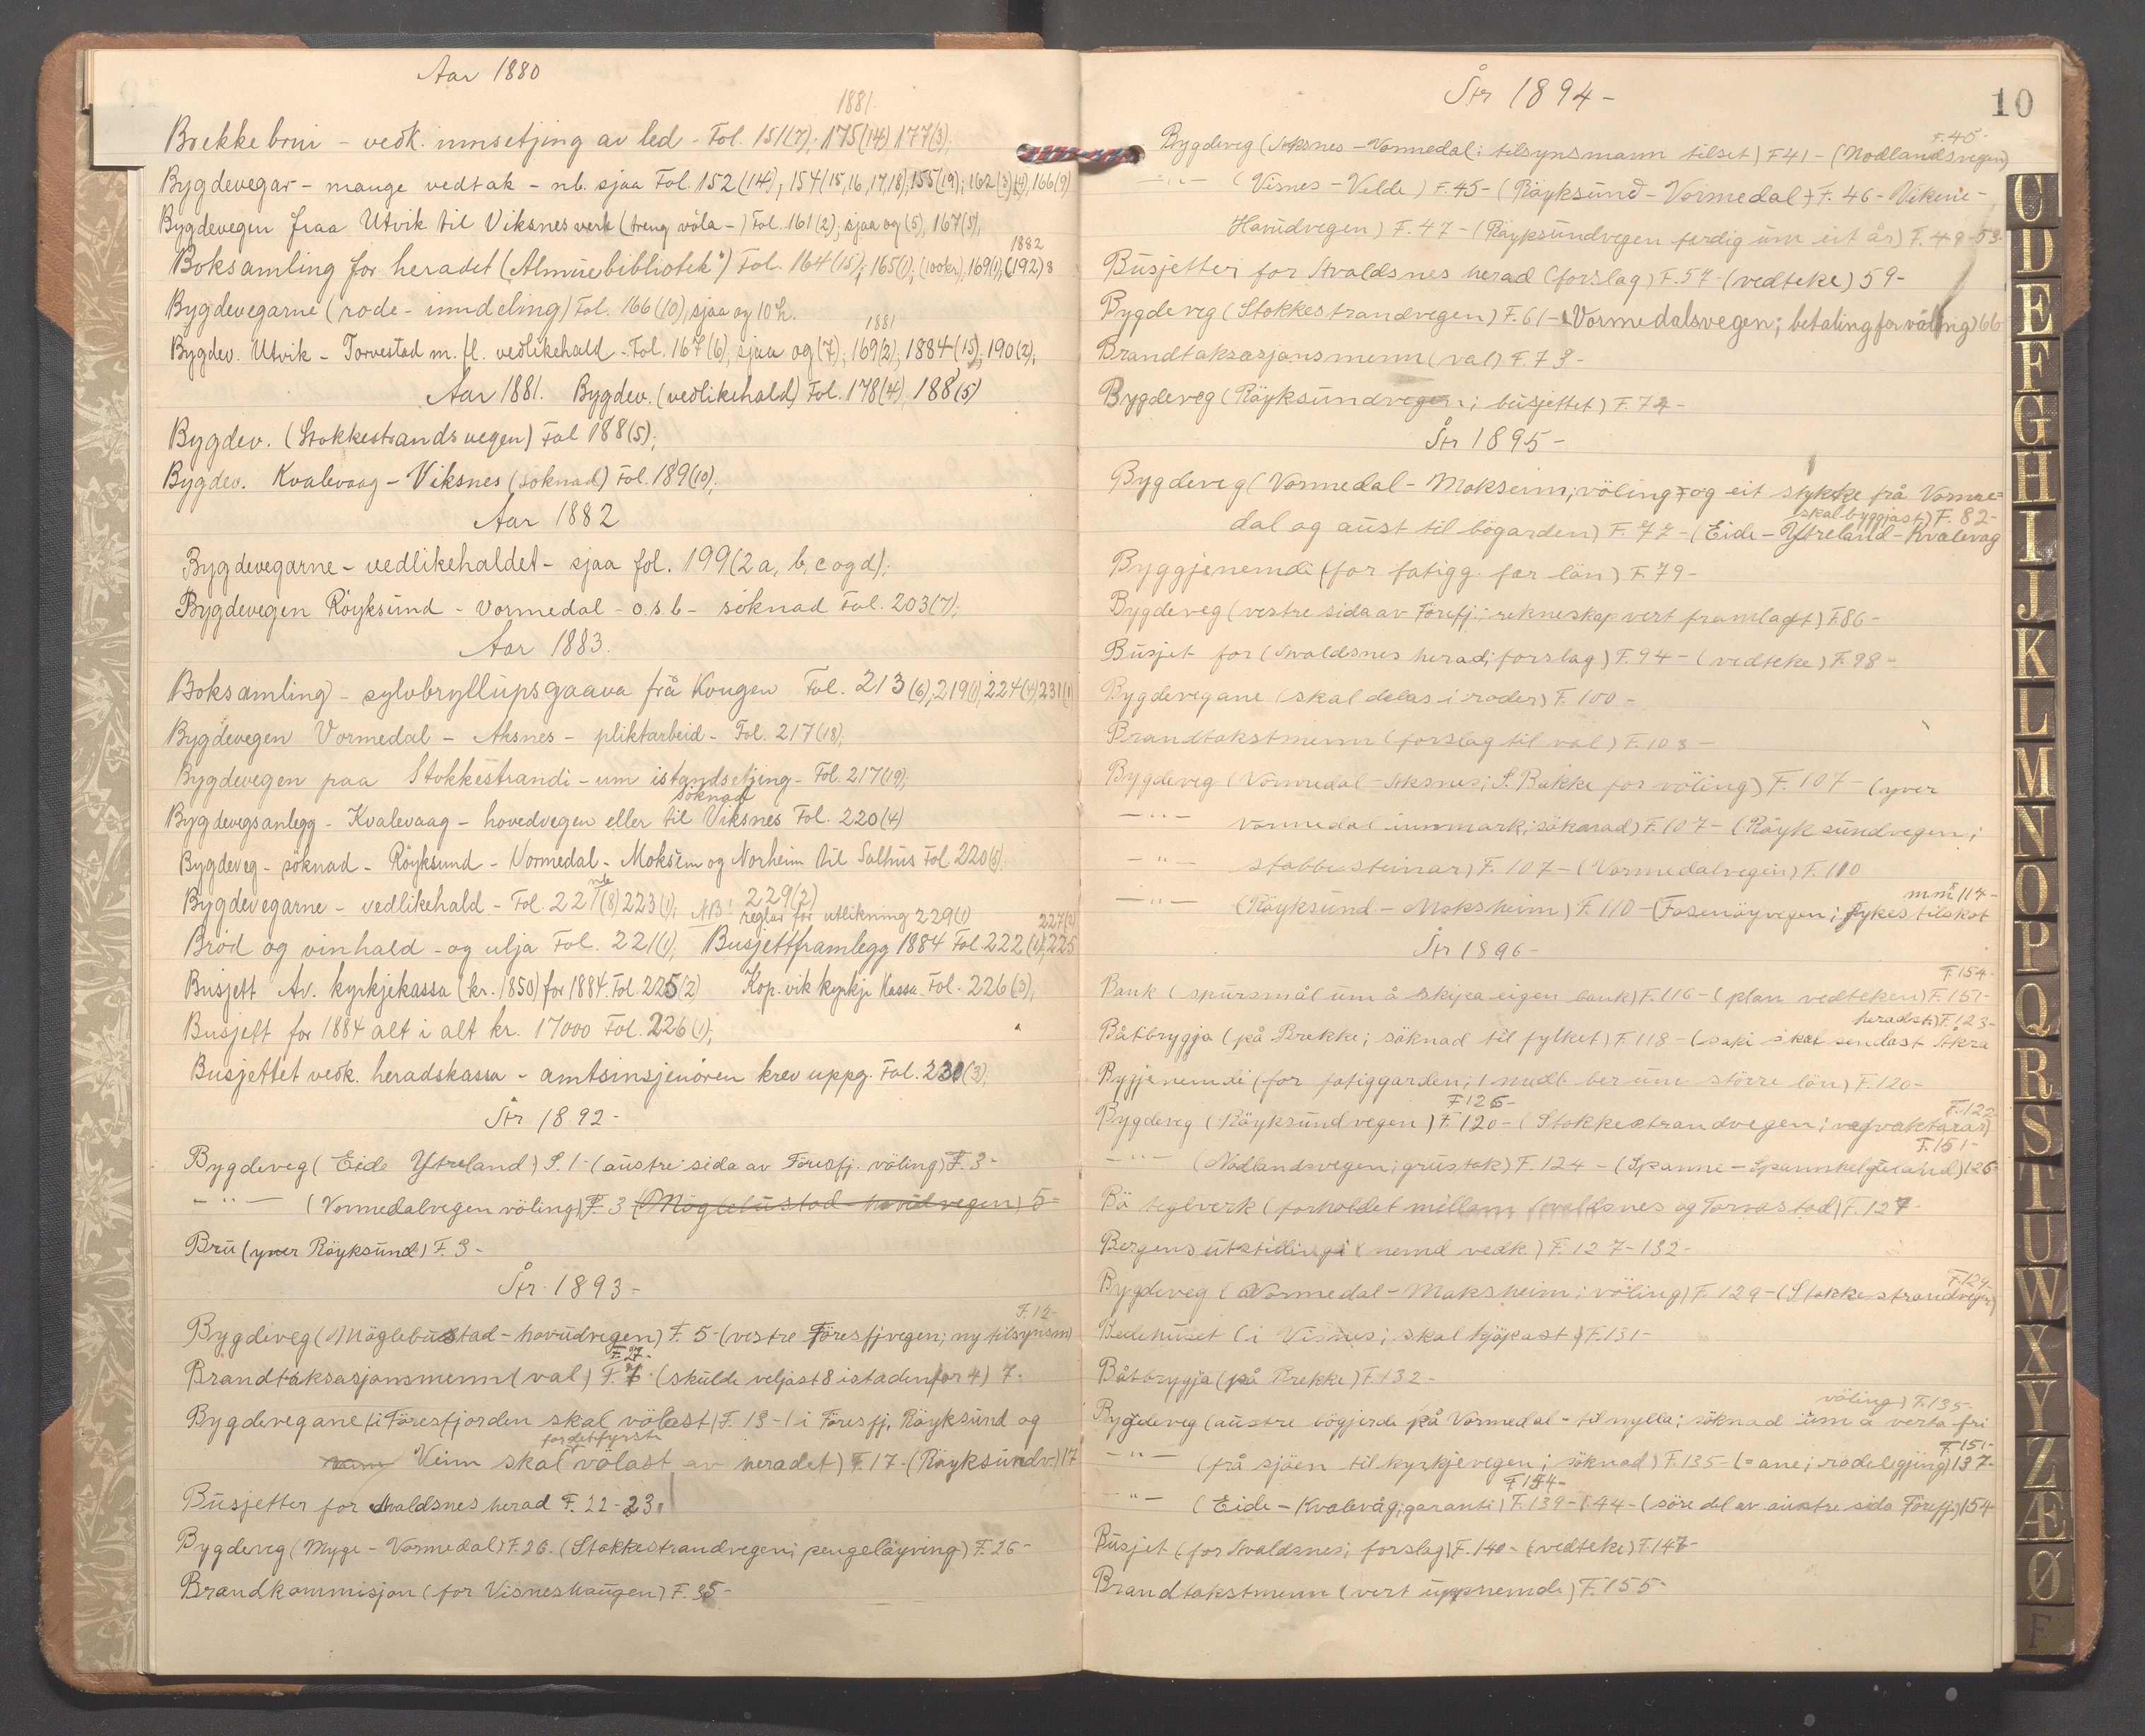 Aar 1880
1881.
Brekke brui - vedk. innsetjing av led - Fol. 151(7); 175(14) 177(3);
Bygdevegar - mange vedtak - nb. sjaa Fol. 152(14), 154(15,16,17,18), 155(19); 162(3)(4), 166(9)
Bygdevegen fraa Utvik til Viksnes verk (treng völa -) Fol. 161(2); sjaa og (5), 167(5);
1882
Boksamling for heradet ("Almuebibliotek") Fol. 164(15); 165(1); (100 kr), 169(1); (192)8
Bygdevegarne (rode - inndeling) Fol. 166(10), sjaa og 10 h.
1881
Bygdev. Utvik - Torvestad m. fl. vedlikehald - Fol. 167(6), sjaa og (7); 169(2); 1884(15); 190(2);
Aar 1881. Bygdev. (vedlikehald) Fol. 178(4), 188(5)
Bygdev. (Stokkestrandsvegen) Fol 188(5);
Bygdev. Kvalevaag - Viksnes (söknad) Fol. 189(10);
Aar 1882
Bygdevegarne - vedlikehaldet - sjaa fol. 199(2a, b, c og d);
Bygdevegen Röyksund - Vormedal - o.s.b - söknad Fol. 203(7);
Aar 1883.
Boksamling - sylvbryllupsgaava frå Kongen Fol. 213(6); 219(1); 224(4); 231(1)
Bygdevegen Vormedal - Aksnes - pliktarbeid - Fol. 217(18);
Bygdevegen paa Stokkestrandi - um istandsetjing - Fol. 217(19);
söknad
Bygdevegsanlegg - Kvalevaag - hovedvegen eller til Viksnes Fol. 220(4)
Bygdeveg - söknad - Röyksund - Vormedal - Moksem og Norheim til Salhus Fol 220(5).
nb 229(2)
Bygdevegarne - vedlikehald - Fol. 221(8) 223(1); NB! reglar for utlikning 229(1)
227(2)
Bröd og vinhald - og ulja Fol. 221(1); Busjettframlegg 1884 Fol. 222(1), 225
Busjett Av. kyrkjekassa (kr. 1850) for 1884 Fol. 225(2) Kop.vik kyrkje Kassa Fol. 226(3);
Busjett for 1884 alt i alt kr. 17000 Fol. 226(1);
Busjettet vedk. heradskassa - amtsinsjenören krev uppg. Fol. 230(3);
År 1892 -
Bygdeveg (Eide Ytreland) S. 1 - (austre sida av Föresfj. völing) F. 3 -
- " - (Vormedalvegen völing) F. 3 (Möglebustad - hovudvegen) 5 -
Bru (yver Röyksund) F. 3 -
År 1893 -
F. 12 -
Bygdeveg (Möglebustad - hovudvegen) F. 5 - (vestre Föresfjvegen; ny tilsynsm)
F. 27 -
Brandtaksasjonsmenn (val) F. 7 - (skulde veljast 8 istadenfor 4) 7 -
Bygdevegane (i Föresfjorden skal völast) F. 13 - (i Föresfj, Röyksund og
fordetfyrste
Veim skal völast av heradet) F. 17 - (Röyksundv.) 17
Busjetter for Avaldsnes herad F. 22 - 23
Bygdeveg (Myge - Vormedal) F. 26. (Stokkestrandvegen; pengelöyving) F. 26 -
Brandkommisjon (for Visneshaugen) F. 35 -
10
År 1894 -
F. 45 -
Bygdeveg (Aksnes - Vormedal; tilsynsmann tilset) F 41 - (Nodlandsvegen)
- " - (Visnes - Velde) F. 45 - (Röyksund - Vormedal) F. 46 - Vikene -
Havudvegen) F. 47 - (Röyksundvegen ferdig um eit år) F. 49 - 53 -
Busjetter for Avaldsnes herad (forslag) F. 57 - (vedteke) 59 -
Bygdeveg (Stokkestrandvegen) F. 61 - (Vormedalsvegen; betaling for völing) 66
Brandtaksasjonsmenn (val) F. 73 -
Bygdeveg (Röyksundvegen; busjettet) F. 74 -
År 1895 -
Bygdeveg (Vormedal - Mokseim; völing og eit stykke frå Vorme-
skal byggjast) F. 82 -
dal og aust til bögarden) F. 77 - (Eide - Ytreland - Kvalevag
Byggjenemdi (for fatigg. fær lön) F. 79 -
Bygdeveg (vestre sida av Föresfj.; rekneskap vert framlagt) F. 86 -
Busjet for (Avaldsnes herad; forslag) F. 94 - (vedteke) F. 98 -
Bygdevegane (skal delas i roder) F. 100 -
Brandtakstmenn (forslag til val) F. 103 -
Bygdeveg (Vormedal - Aksnes; S. Bakke for völing) F. 107 - (yver
- " - Vormedal innmark; söknad) F. 107 - (Röyksundvegen;
- " - stabbesteinar) F. 107 - (Vormedalvegen) F. 110
m.m. F 114 -
- " - (Röyksund - Moksheim) F. 110 - (Fosenöyvegen; fykestilskot
År 1896 -
F. 154 -
Bank (spursmål um å skipa eigen bank) F. 116 - (plan vedteken) F. 151 -
heradst) F. 123 -
Båtbryggja (på Brekke; söknad til fylket) F. 118 - (saki skal sendast Åkra
Byggjenemdi (for fatiggarden; 1 medl. ber um större lön) F. 120 -
F 126 - F. 122
Bygdeveg (Röyksundvegen) F. 120 - (Stokkestrandvegen; vegvaktarar)
F. 151 -
- " - (Nodlandsvegen; grustak) F. 124 - (Spanne - Spannhelgeland) 126
Bö teglverk (forholdet millom Avaldsnes og Torvastad) F. 127 -
Bergensutstillingi (nemd vedk.) F. 127 - 132 -
F. 129 -
Bygdeveg (Vormedal - Moksheim; völing) F. 129 - (Stokkestrandvegen)
Bedehuset (i Visnes; skal kjöpast) F. 131 -
Båtbrygja (på Brekke) F. 132 -
völing) F. 135 -
Bygdeveg (austre bögjerde på Vormedal - til nylla; söknad um å verta fri
F. 151 -
- " - (frå sjöen til kyrkjevegen; söknad) F. 135 - (= ane; rodelegjing) 137 -
F 154 -
- " - (Eide - Kvalevåg; garanti) F. 139 - 144 - (söre del av austre sida Föresfj) 154
Busjet (for Avaldsnes; forslag) F. 140 - (vedteke) F. 147 -
Brandtakstmenn (vert uppnemde) F. 155 -
C
D
E
F
G
H
I
J
K
L
M
N
O
P
Q
R
S
T
U
W
X
Y
Z
Æ
Ø
F